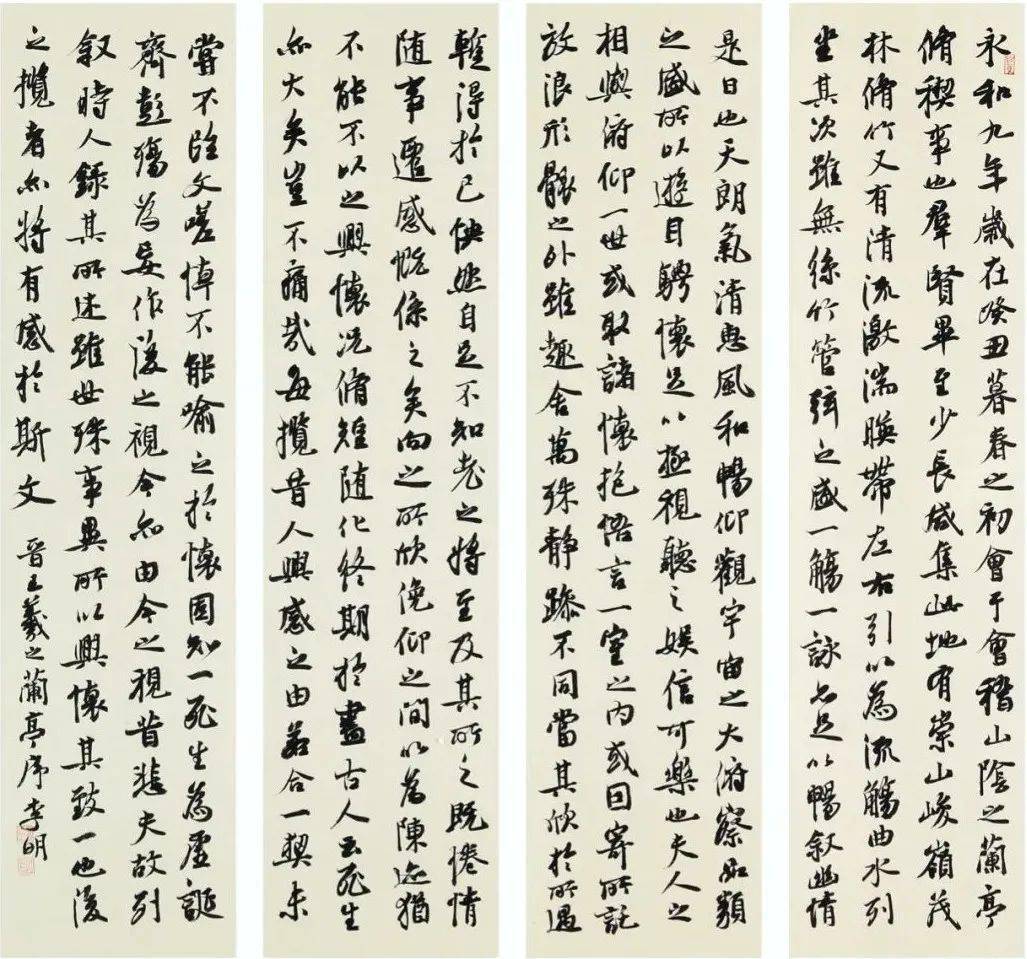 永和九年歲在癸丑暮春之初會于會稽山陰之蘭亭
脩稧事也羣賢畢至少長咸集此地有崇山峻嶺茂
林脩竹又有清流激湍暎帶左右引以為流觴曲水列
坐其次雖無絲竹管弦之盛一觴一詠亦足以暢敘幽情
是日也天朗氣清惠風和暢仰觀宇宙之大俯察品類
之盛所以遊目騁懷足以極視聽之娛信可樂也夫人之
相與俯仰一世或取諸懷抱悟言一室之內或因寄所託
放浪形骸之外雖趣舍萬殊靜躁不同當其欣於所遇
蹔得於己快然自足不知老之將至及其所之既惓情
隨事遷感慨係之矣向之所欣俛仰之間以為陳迹猶
不能不以之興懷況脩短隨化終期於盡古人云死生
亦大矣豈不痛哉每攬昔人興感之由若合一契未
嘗不臨文嗟悼不能喻之於懷固知一死生為虛誕
齊彭殤為妄作後之視今亦由今之視昔悲夫故列
敘時人錄其所述雖世殊事異所以興懷其致一也後
之攬者亦將有感於斯文 晉王羲之蘭亭序李明